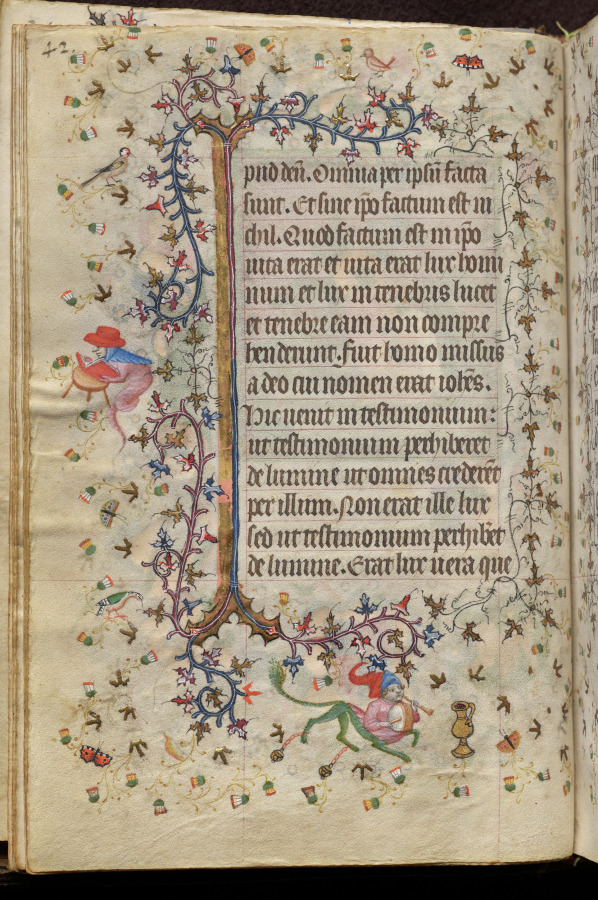 42.
pud deū. Omnia per ipsū facta
sunt. Et sine ip̄o factum est ni
chil. Quod factum est in ip̄o
uita erat et uita erat lux homi
num et lux in tenebris lucet
et tenebre eam non compre
henderunt. Fuit homo missus
a deo cui nomen erat ioh̄es.
Hic uenit in testimonium:
ut testimonium perhiberet
de lumine ut omnes crederēt
per illum. Non erat ille lux
sed ut testimonium perhibēt
de lumine. Erat lux uera que